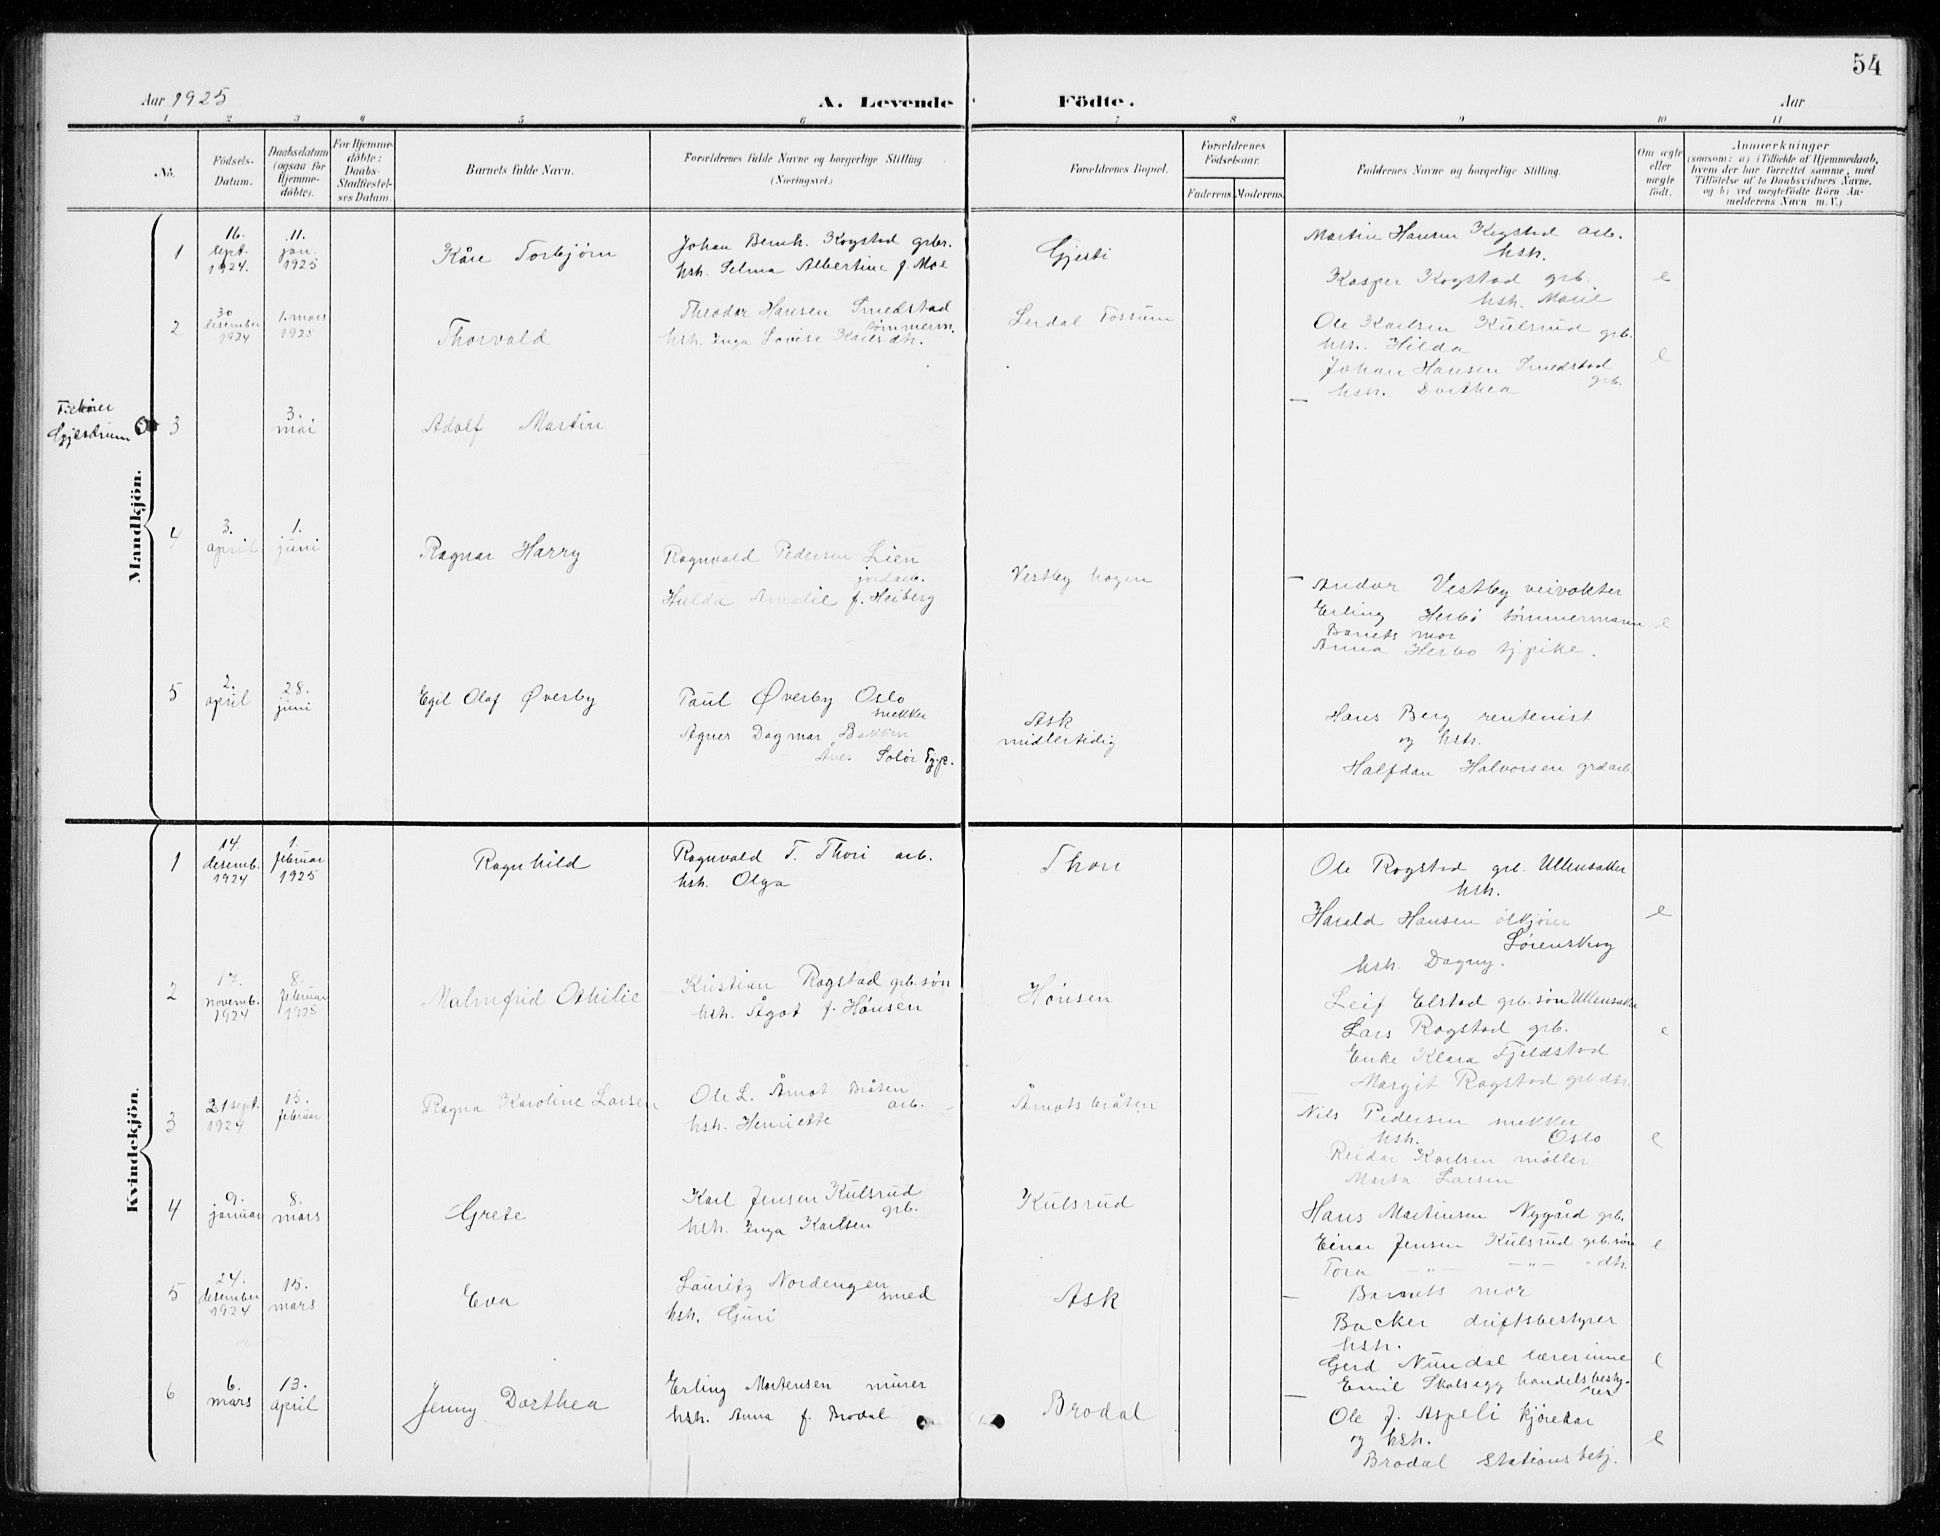 54
Aar 1925
A. Levende Födte.
Aar
1 2 3 4 5 6 7 8 9 10 11
No.
Födsels-Datum.
Daabsdatum (ogsaa for Hjemme-döbte).
For Hjemme-döbte: Daabs-Stadfæstel-ses Datum.
Barnets fulde Navn.
Forældrenes fulde Navne og borgerlige Stilling.
(Næringsvei.)
Forældrenes Bopæl.
Forældrenes Födselsaar.
Faderens Moderens.
Faddernes Navne og borgerlige Stilling.
Om ægte eller uægte födt.
Anmærkninger
(saasom: a) i Tilfælde af Hjemmedaab,
hvem der har forrettet samme, med
Tilföielse af to Daabsvidners Navne,
og b) ved uægtefödte Börn An-
melderens Navn m. V.)
Mandkjön.
1
16. sept. 1924.
11. jan. 1925
Kåre Torbjørn
Johan Bernh. Kogstad grbr.
hsh. Selma Albertine f. Moe
Gjesti
Martin Hansen Kogstad arb.
hsh.
Kasper Kogstad grb.
hsh. Marie
e
2
30 desember 1924
1. mars 1925
Thorvald
Theodor Hansen Smedstad
tømmerm.
hsh. Inga Lovise Karlsdh.
Lerdal Fossum
Ole Karlsen Kulsrud grb.
hsh. Hilda
Johan Hansen Smedstad
grb.
hsh. Dorthea
e
Gjerdrum
3
3. mai
Adolf Martin
4
3. april
1. juni
Ragnar Harry
Ragnvald Pedersen Lien
jordarb.
Hulda Amalie f. Heiberg
Vestby hagen
Andor Vestby veivokter
Erling Herbo tømmermann
Barnets mor
Anna Herbo tj.pike.
e
5
2. april
28. juni
Egil Olaf Øverby
Paul Øverby Oslo
snekker
Agnes Dagmar Bakken
Solør Tj.p.
Ask
midlertidig
Hans Berg rentenist
og hstr.
Halfdan Halvorsen grdarb.
Kvindekjön.
1
14. desemb. 1924
1. februar 1925
Ragnhild
Ragnvald T. Thori arb.
hsh. Olga
Thori
Ole Rogstad grb. Ullensaker
hsh.
Harald Hansen ølkjører
Lørenskog
hsh. Dagny.
e
2
17. novemb. 1924
8. februar 1925
Malmfrid Othilie
Kristian Rogstad grb.søn
hsh. Ågot f. Hønsen
Hønsen
Leif Elstad grb.søn Ullensaker
Lars Rogstad grb.
Enke Klara Fjeldstad
Margit Rogstad grb.dtr.
e
3
21 sept. 1924
15. februar
Ragna Karoline Larsen
Ole L. Årnot Bråten
arb.
hsh. Henriette
Årnotsbråten
Nils Pedersen snekker
hsh. Oslo
Reidar Karlsen møller
Marta Larsen
e
4
9. januar
8. mars
Grete
Karl Jensen Kulsrud
grb.
hsh. Inga Karlsen
Kulsrud
Hans Martinsen Nygård grb.
Einar Jensen Kulsrud grb.søn
Tora -"- -"- "dtr.
Barnets mor
e
5
24. desember 1924
15. mars
Eva
Lauritz Nordengen
smed
hsh. Guri
Ask
Backer driftsbestyrer
hsh.
Gerd Nundal lærerinne
Emil Skolsegg handelsbesty-
rer
e
6
6. mars
13. april
Jenny Dorthea
Erling Mortensen murer
hsh. Anna f. Brodal
Brodal
Ole J. Aspeli kjørekar
og hsh.
Brodal stationsbetj.
e